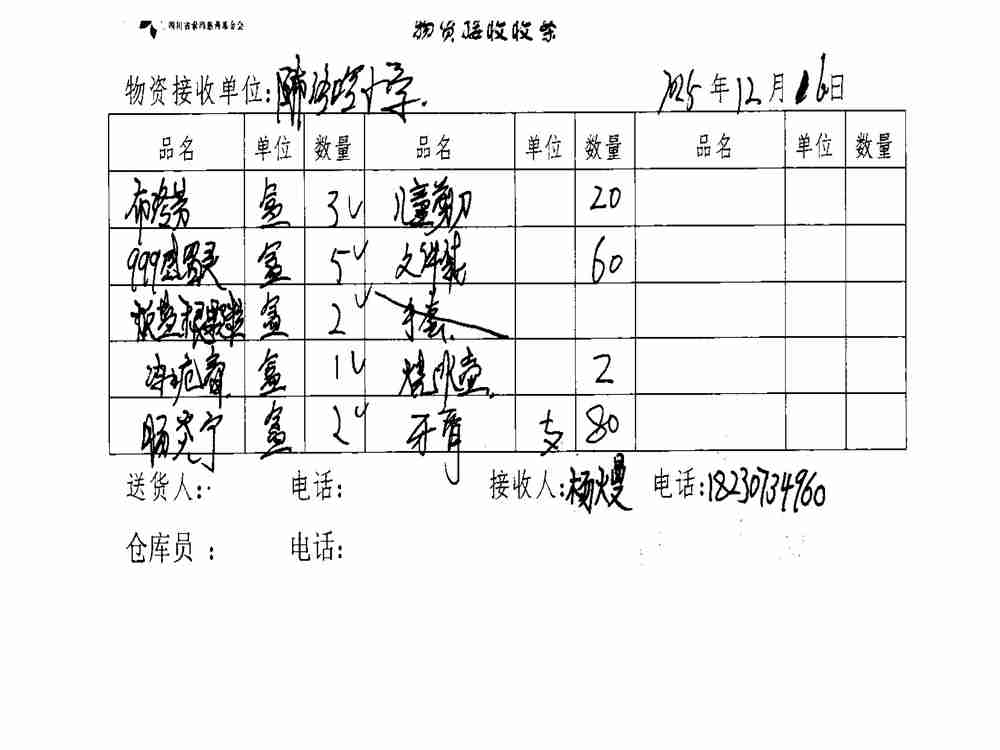 物资接收收条
物资接收单位: 小学. 2025年12月16日
品名 单位 数量 品名 单位 数量 品名 单位 数量
布洛芬 盒 3✓ 儿童剪刀 20
999感冒灵 盒 5✓ 文件袋 60
板蓝根颗粒 盒 2✓ 手套
冻疮膏 盒 1✓ 烧水壶 2
肠炎宁 盒 2✓ 牙膏 支 80
送货人: 电话: 接收人:杨熳 电话:18230734960
仓库员: 电话: